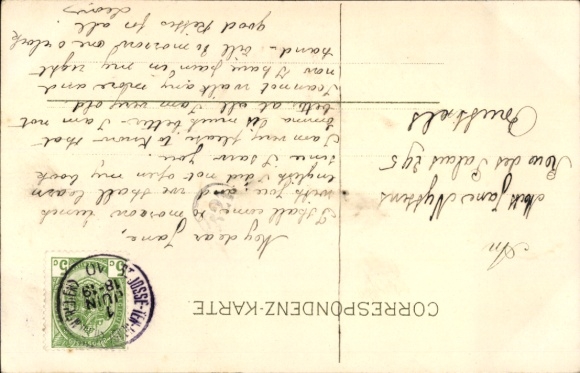 CORRESPONDENZ-KARTE
My dear Jane,
I shall come to morrow lunch
with you, and we shall learn
english I did not open my book
since I saw you.
I am very please to know that
Emma is much better. I am not
better at all I am very old
I cannot walk any more and
now I have pain in my right
hand - till to morrow one o'clock
good kisses for all.
Jane Nyssens
Rue des Palais 295
Bruxelles
5c 5c
ST JOSSE-TEN-
1
JUIN
18-19